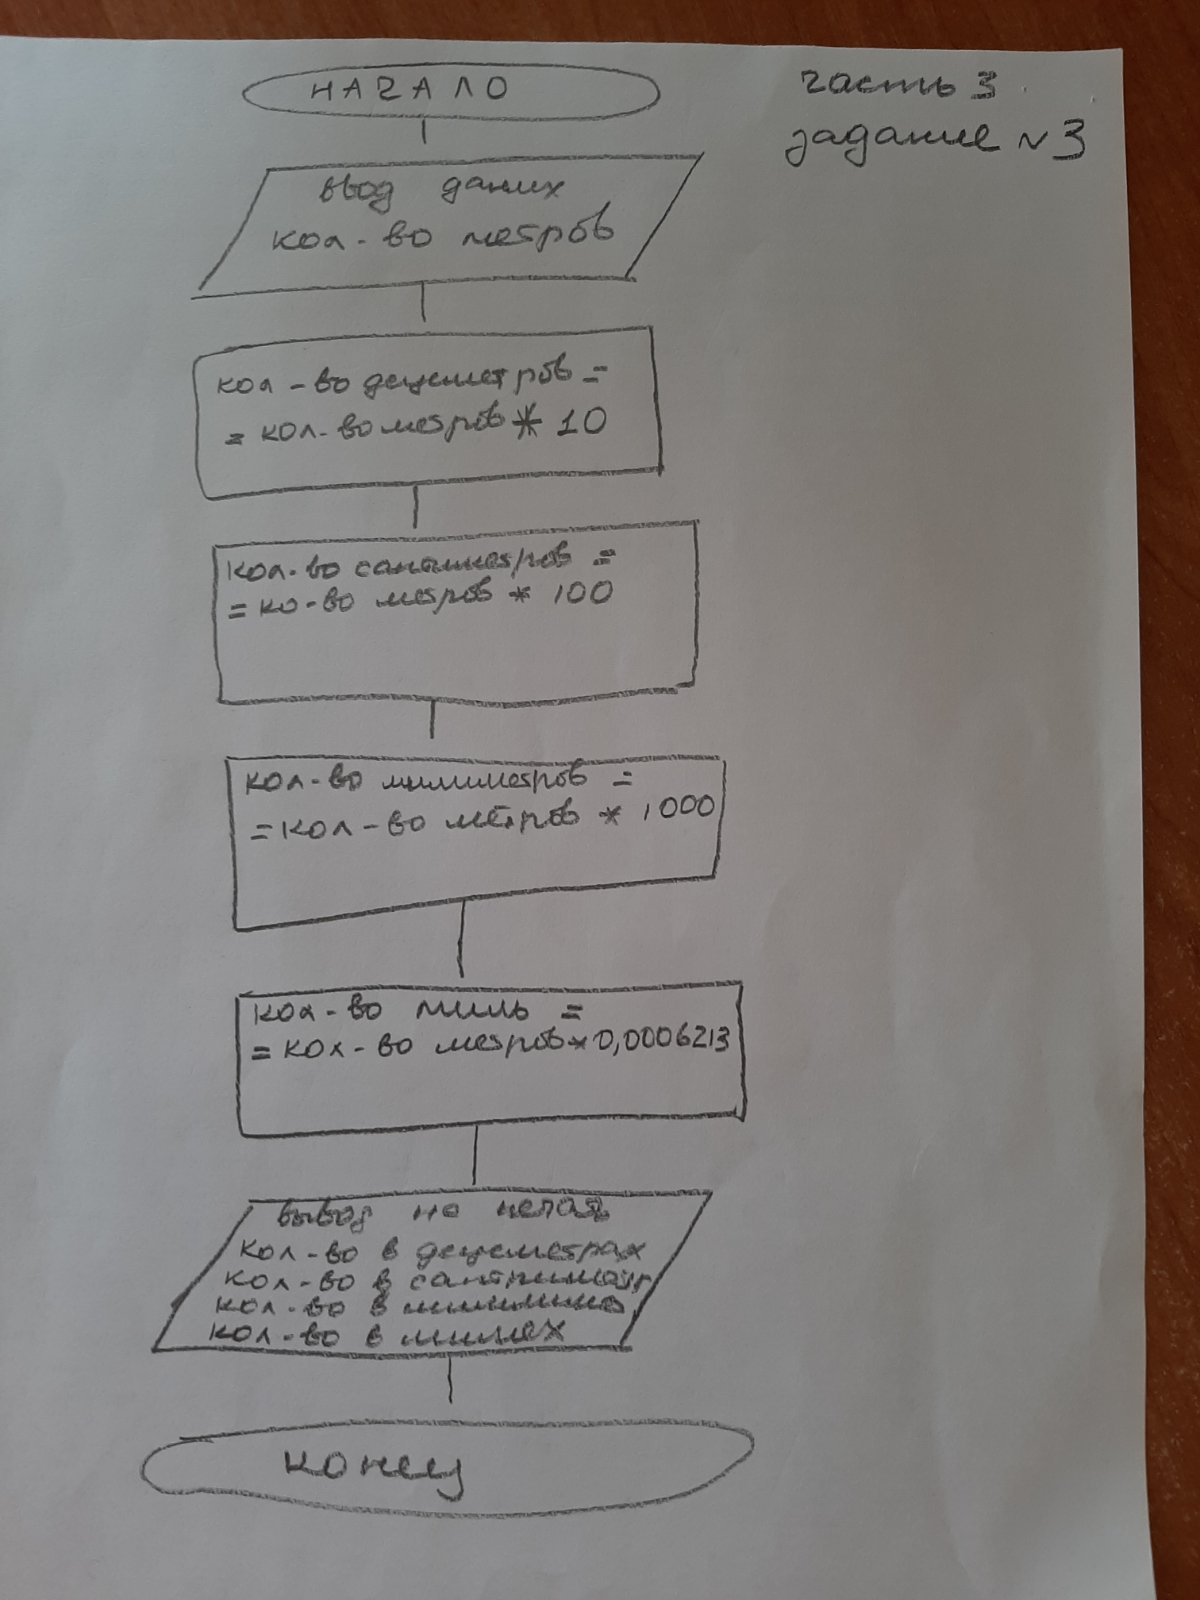 НАЧАЛО
часть 3
задание №3
ввод даних
кол-во метров
кол-во дециметров =
= кол-во метров * 10
кол-во сантиметров =
= ко-во метров * 100
кол-во милиметров =
= кол-во метров * 1000
кол-во миль =
= кол-во метров * 0,0006213
вывод на
кол-во в дециметрах
кол-во в
кол-во в
кол-во в милях
конец